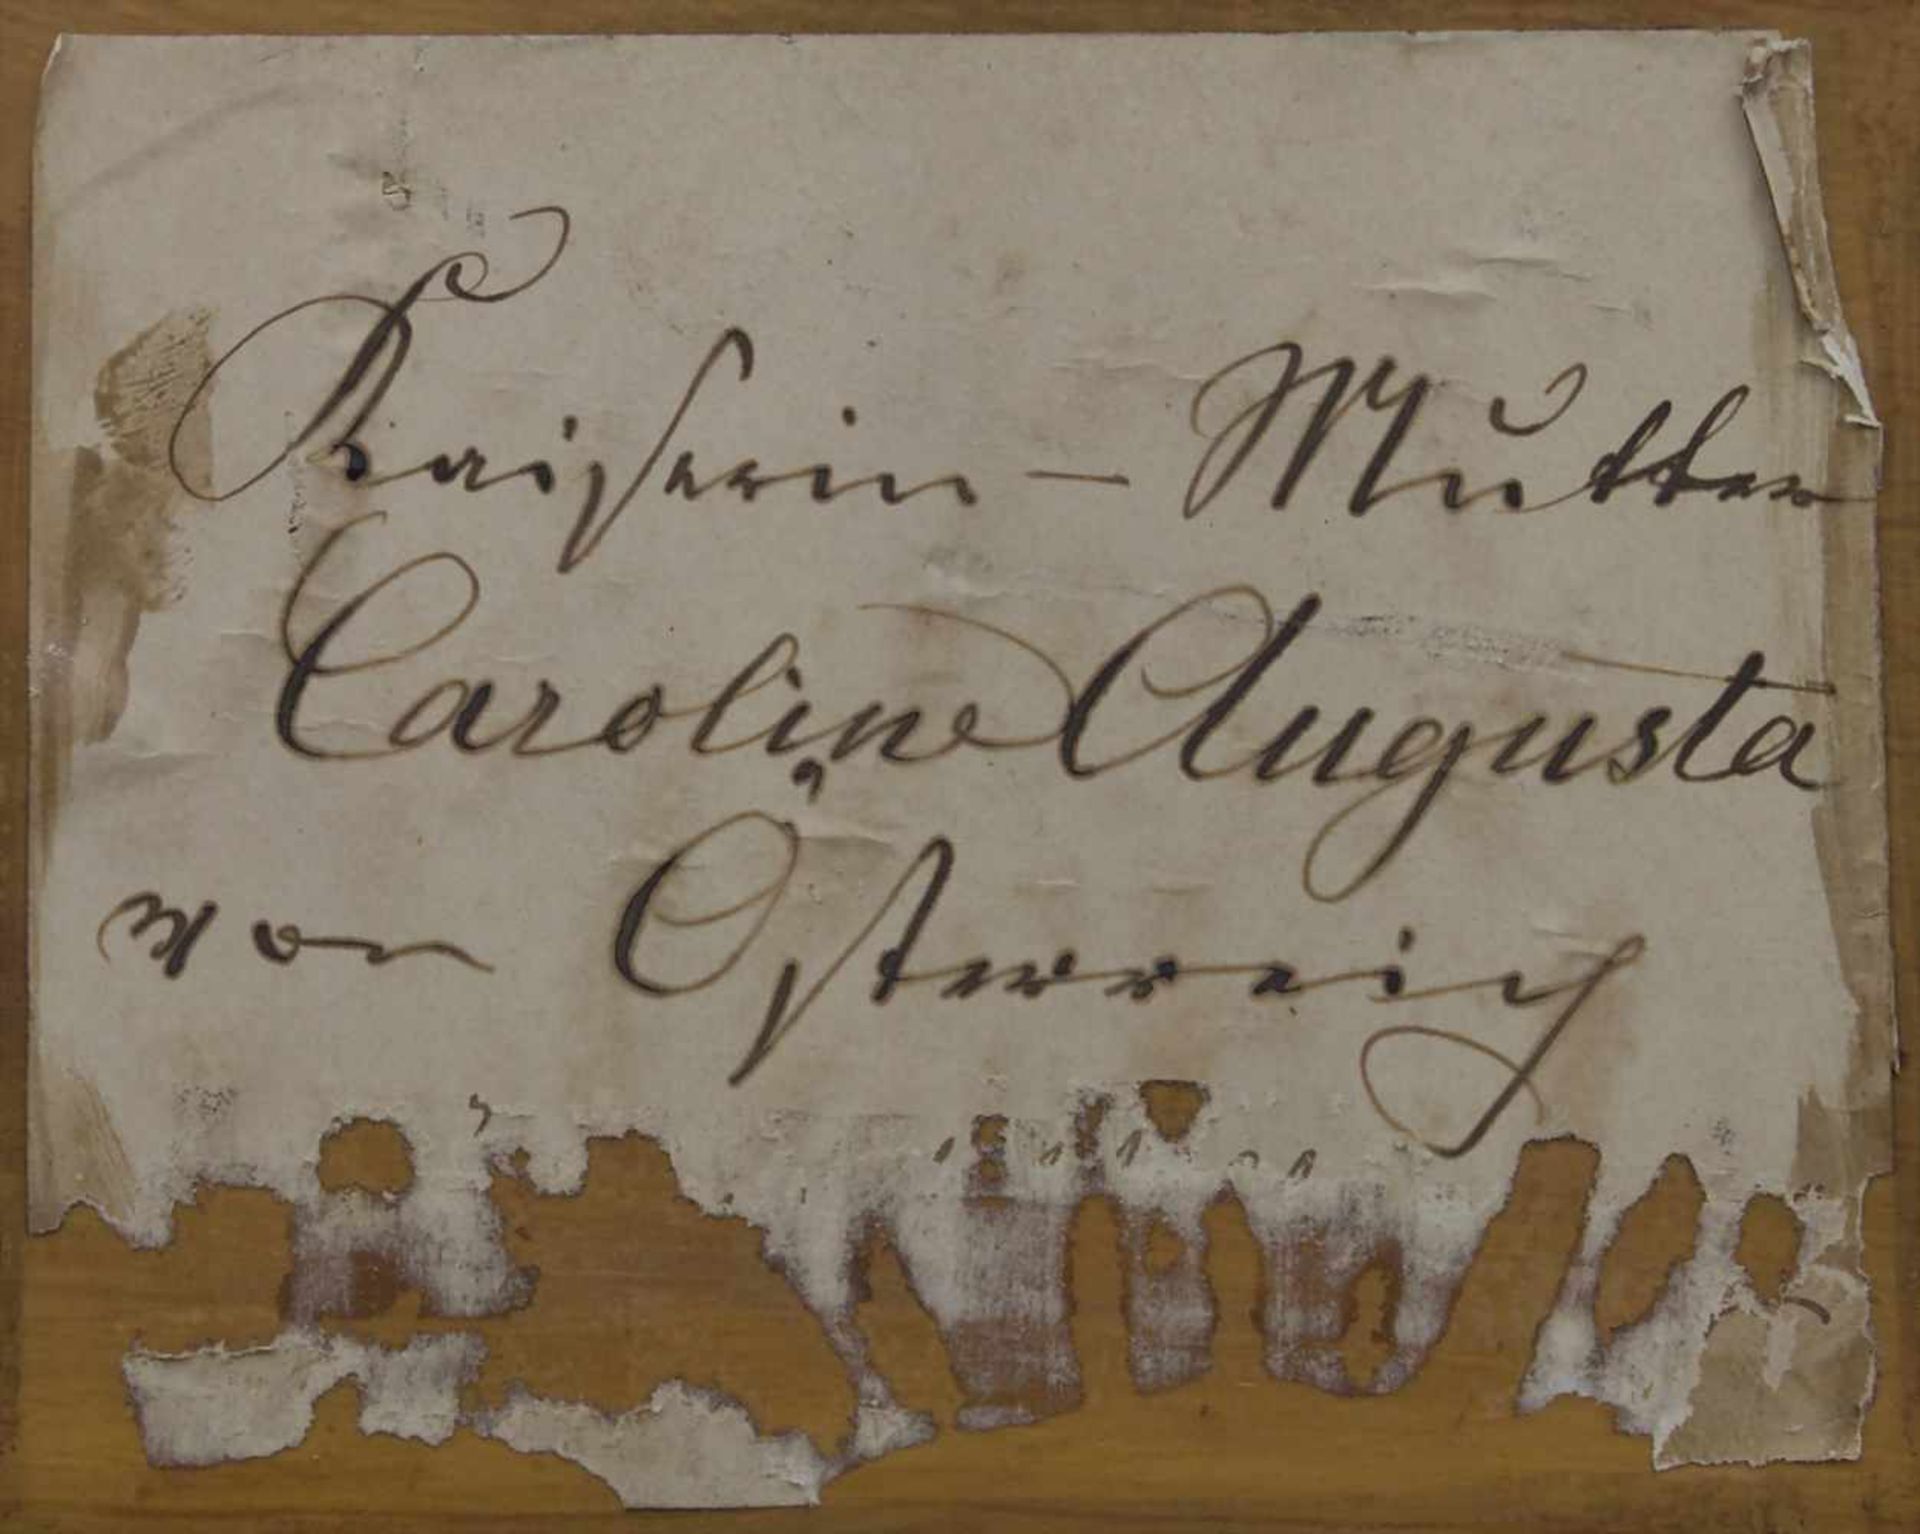 Kaiserin - Mutter
Caroline Augusta
von Österreich